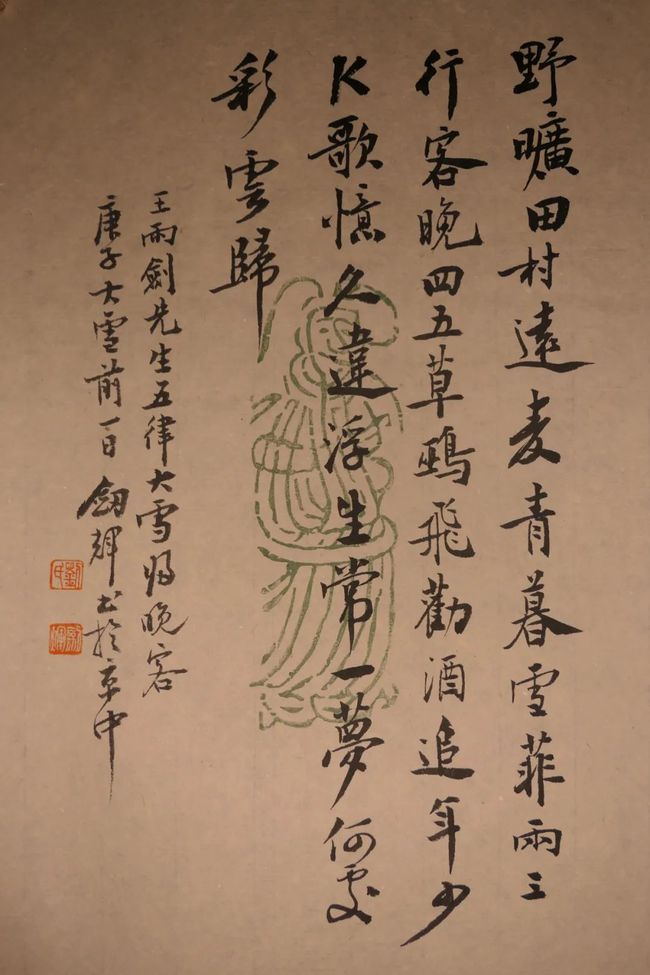 野曠田村遠麦青暮雪菲兩三
行客晚四五草鵐飛勸酒追年少
K歌憶久違浮生常一夢何處
彩雲歸
王雨劍先生五律大雪归晚客
庚子大雪前一日劍輝书於京中